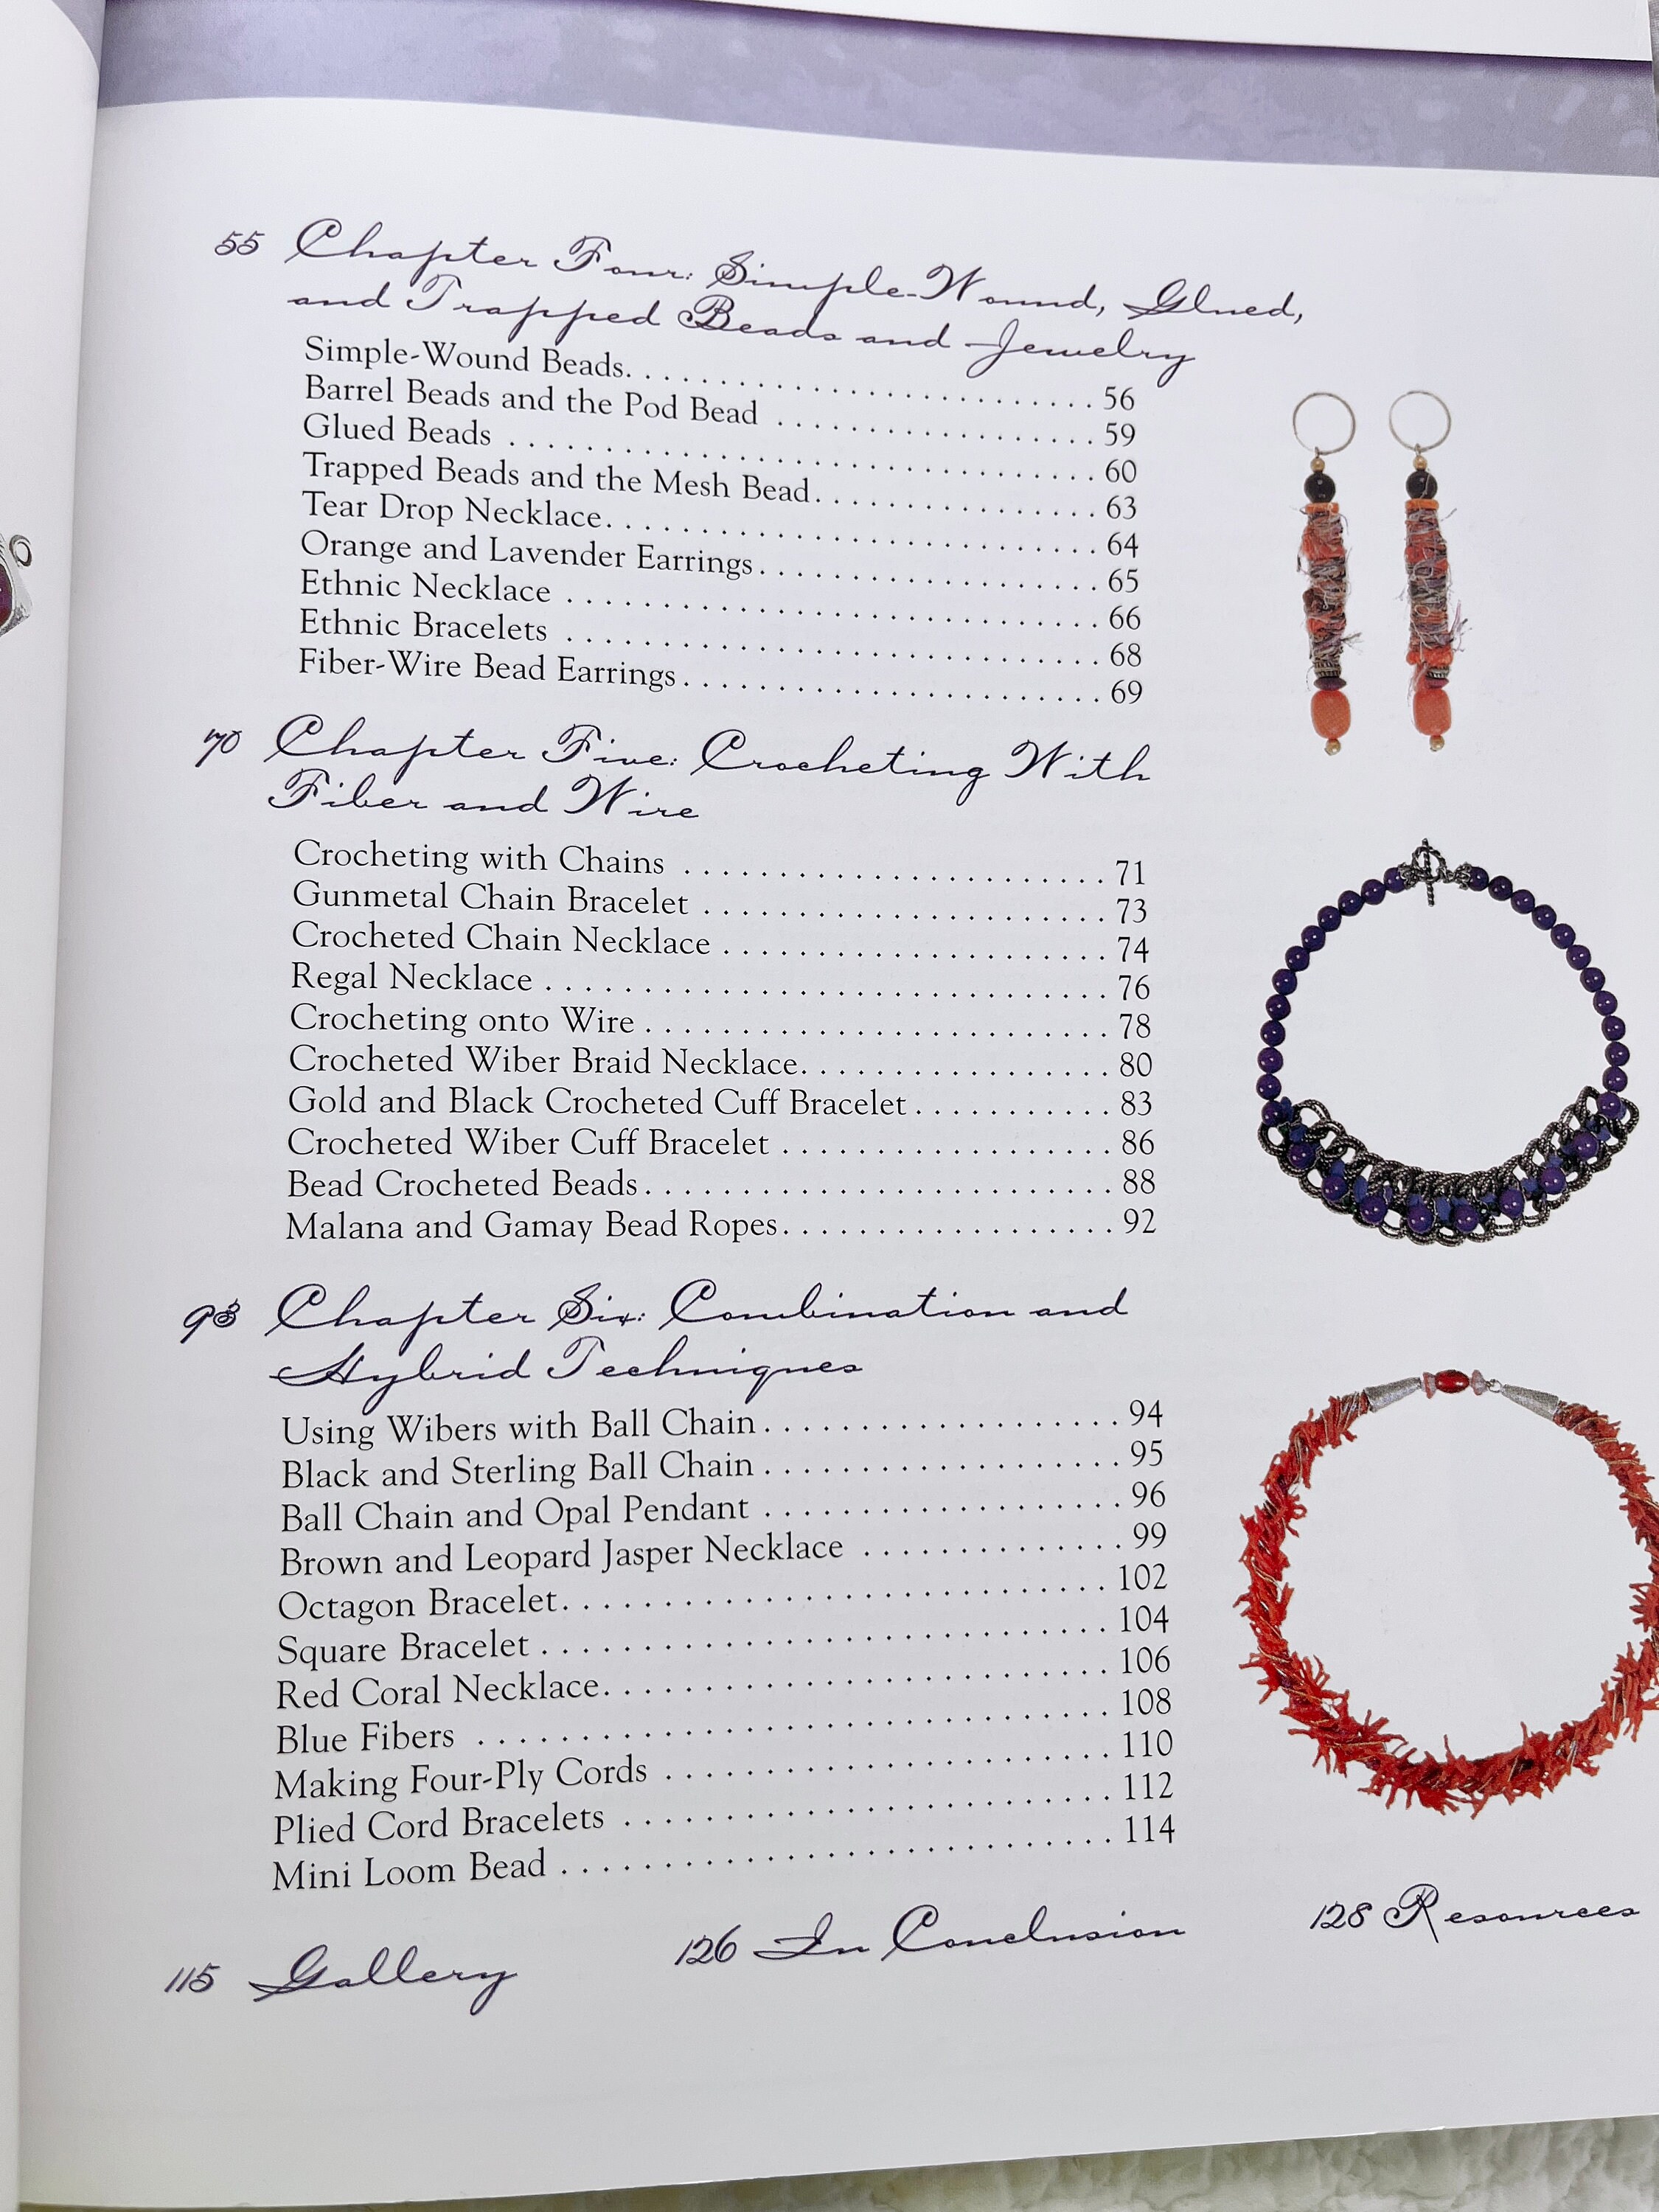 55 Chapter Four: Simple-Wound, Glued,
and Trapped Beads and Jewelry
Simple-Wound Beads. . . . . . . . . . . . . . . . . . . . . . . . . 56
Barrel Beads and the Pod Bead . . . . . . . . . . . . . . . . . 59
Glued Beads . . . . . . . . . . . . . . . . . . . . . . . . . . . . . . 60
Trapped Beads and the Mesh Bead. . . . . . . . . . . . . . . 63
Tear Drop Necklace. . . . . . . . . . . . . . . . . . . . . . . . . . 64
Orange and Lavender Earrings. . . . . . . . . . . . . . . . . . 65
Ethnic Necklace . . . . . . . . . . . . . . . . . . . . . . . . . . . . 66
Ethnic Bracelets . . . . . . . . . . . . . . . . . . . . . . . . . . . . 68
Fiber-Wire Bead Earrings. . . . . . . . . . . . . . . . . . . . . . 69
70 Chapter Five: Crocheting With
Fiber and Wire
Crocheting with Chains . . . . . . . . . . . . . . . . . . . . . . 71
Gunmetal Chain Bracelet . . . . . . . . . . . . . . . . . . . . . 73
Crocheted Chain Necklace . . . . . . . . . . . . . . . . . . . . 74
Regal Necklace . . . . . . . . . . . . . . . . . . . . . . . . . . . . . 76
Crocheting onto Wire . . . . . . . . . . . . . . . . . . . . . . . . 78
Crocheted Wiber Braid Necklace. . . . . . . . . . . . . . . . 80
Gold and Black Crocheted Cuff Bracelet . . . . . . . . . . 83
Crocheted Wiber Cuff Bracelet . . . . . . . . . . . . . . . . . 86
Bead Crocheted Beads. . . . . . . . . . . . . . . . . . . . . . . . 88
Malana and Gamay Bead Ropes. . . . . . . . . . . . . . . . . 92
93 Chapter Six: Combination and
Hybrid Techniques
Using Wibers with Ball Chain. . . . . . . . . . . . . . . . . . 94
Black and Sterling Ball Chain . . . . . . . . . . . . . . . . . . 95
Ball Chain and Opal Pendant . . . . . . . . . . . . . . . . . . 96
Brown and Leopard Jasper Necklace . . . . . . . . . . . . . 99
Octagon Bracelet. . . . . . . . . . . . . . . . . . . . . . . . . . . . 102
Square Bracelet . . . . . . . . . . . . . . . . . . . . . . . . . . . . . 104
Red Coral Necklace. . . . . . . . . . . . . . . . . . . . . . . . . . 106
Blue Fibers . . . . . . . . . . . . . . . . . . . . . . . . . . . . . . . . 108
Making Four-Ply Cords . . . . . . . . . . . . . . . . . . . . . . . 110
Plied Cord Bracelets . . . . . . . . . . . . . . . . . . . . . . . . . 112
Mini Loom Bead . . . . . . . . . . . . . . . . . . . . . . . . . . . . 114
115 Gallery
126 In Conclusion
128 Resources